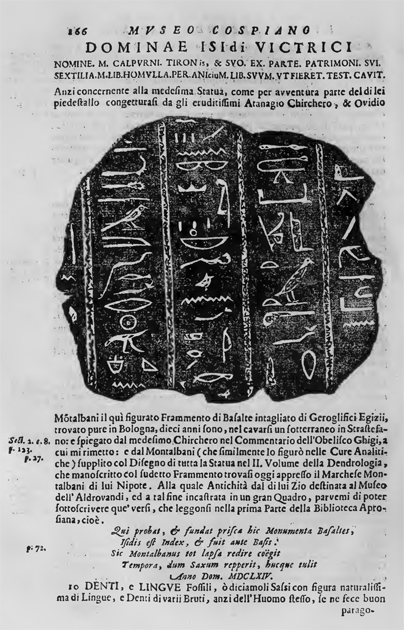 166 MVSEO COSPIANO
DOMINAE ISIdi VICTRICI
NOMINE. M. CALPVRNI. TIRONis, & SVO. EX. PARTE. PATRIMONI. SVI.
SEXTILIA.M.LIB.HOMVLLA.PER.ANIciuM.LIB.SVVM.VT FIERET. TEST. CAVIT.
Anzi concernente alla medesima Statua, come per avventura parte del di lei
piedestallo congetturasi da gli eruditissimi Atanagio Chirchero, & Ovidio
Mōtalbani il quì figurato Frammento di Basalte intagliato di Geroglifici Egizii,
trovato pure in Bologna, dieci anni sono, nel cavarsi un sotterraneo in Strastefa-
Sess. 2. c. 8. no: e spiegato dal medesimo Chirchero nel Commentario dell'Obelisco Ghigi, a
p. 123. cui mi rimetto: e dal Montalbani (che similmente lo figurò nelle Cure Analiti-
p. 27. che) supplito col Disegno di tutta la Statua nel II. Volume della Dendrologia,
che manoscritto col sudetto Frammento trovasi oggi appresso il Marchese Mon-
talbani di lui Nipote. Alla quale Antichità da di lui Zio destinata al Museo
dell'Aldrovandi, ed a tal fine incastrata in un gran Quadro, parvemi di poter
sottoscrivere que' versi, che leggonsi nella prima Parte della Biblioteca Apro-
siana, cioè.
Qui probat, & fundat prisca hic Monumenta Basaltes,
p. 72. Isidis est Index, & fuit ante Basis:
Sic Montalbanus tot lapsa redire coëgit
Tempora, dum Saxum repperit, hucque tulit
Anno Dom. MDCLXIV.
10 DENTI, e LINGVE Fossili, ò diciamoli Sassi con figura naturalissi-
ma di Lingue, e Denti di varii Bruti, anzi dell'Huomo stesso, se ne fece buon
parago-